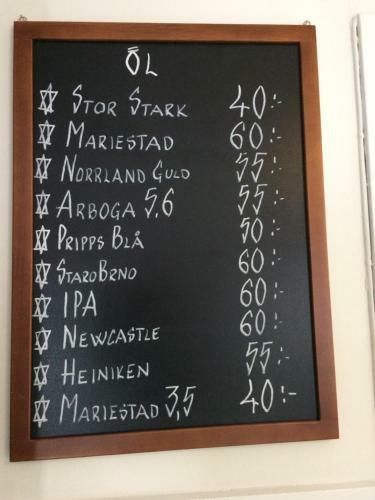 ÖL
✡ STOR STARK 40:-
✡ MARIESTAD 60:-
✡ NORRLAND GULD 55:-
✡ ARBOGA 5,6 55:-
✡ PRIPPS BLÅ 50:-
✡ STAROBRNO 60:-
✡ IPA 60:-
✡ NEWCASTLE 60:-
✡ HEINIKEN 55:-
✡ MARIESTAD 3,5 40:-